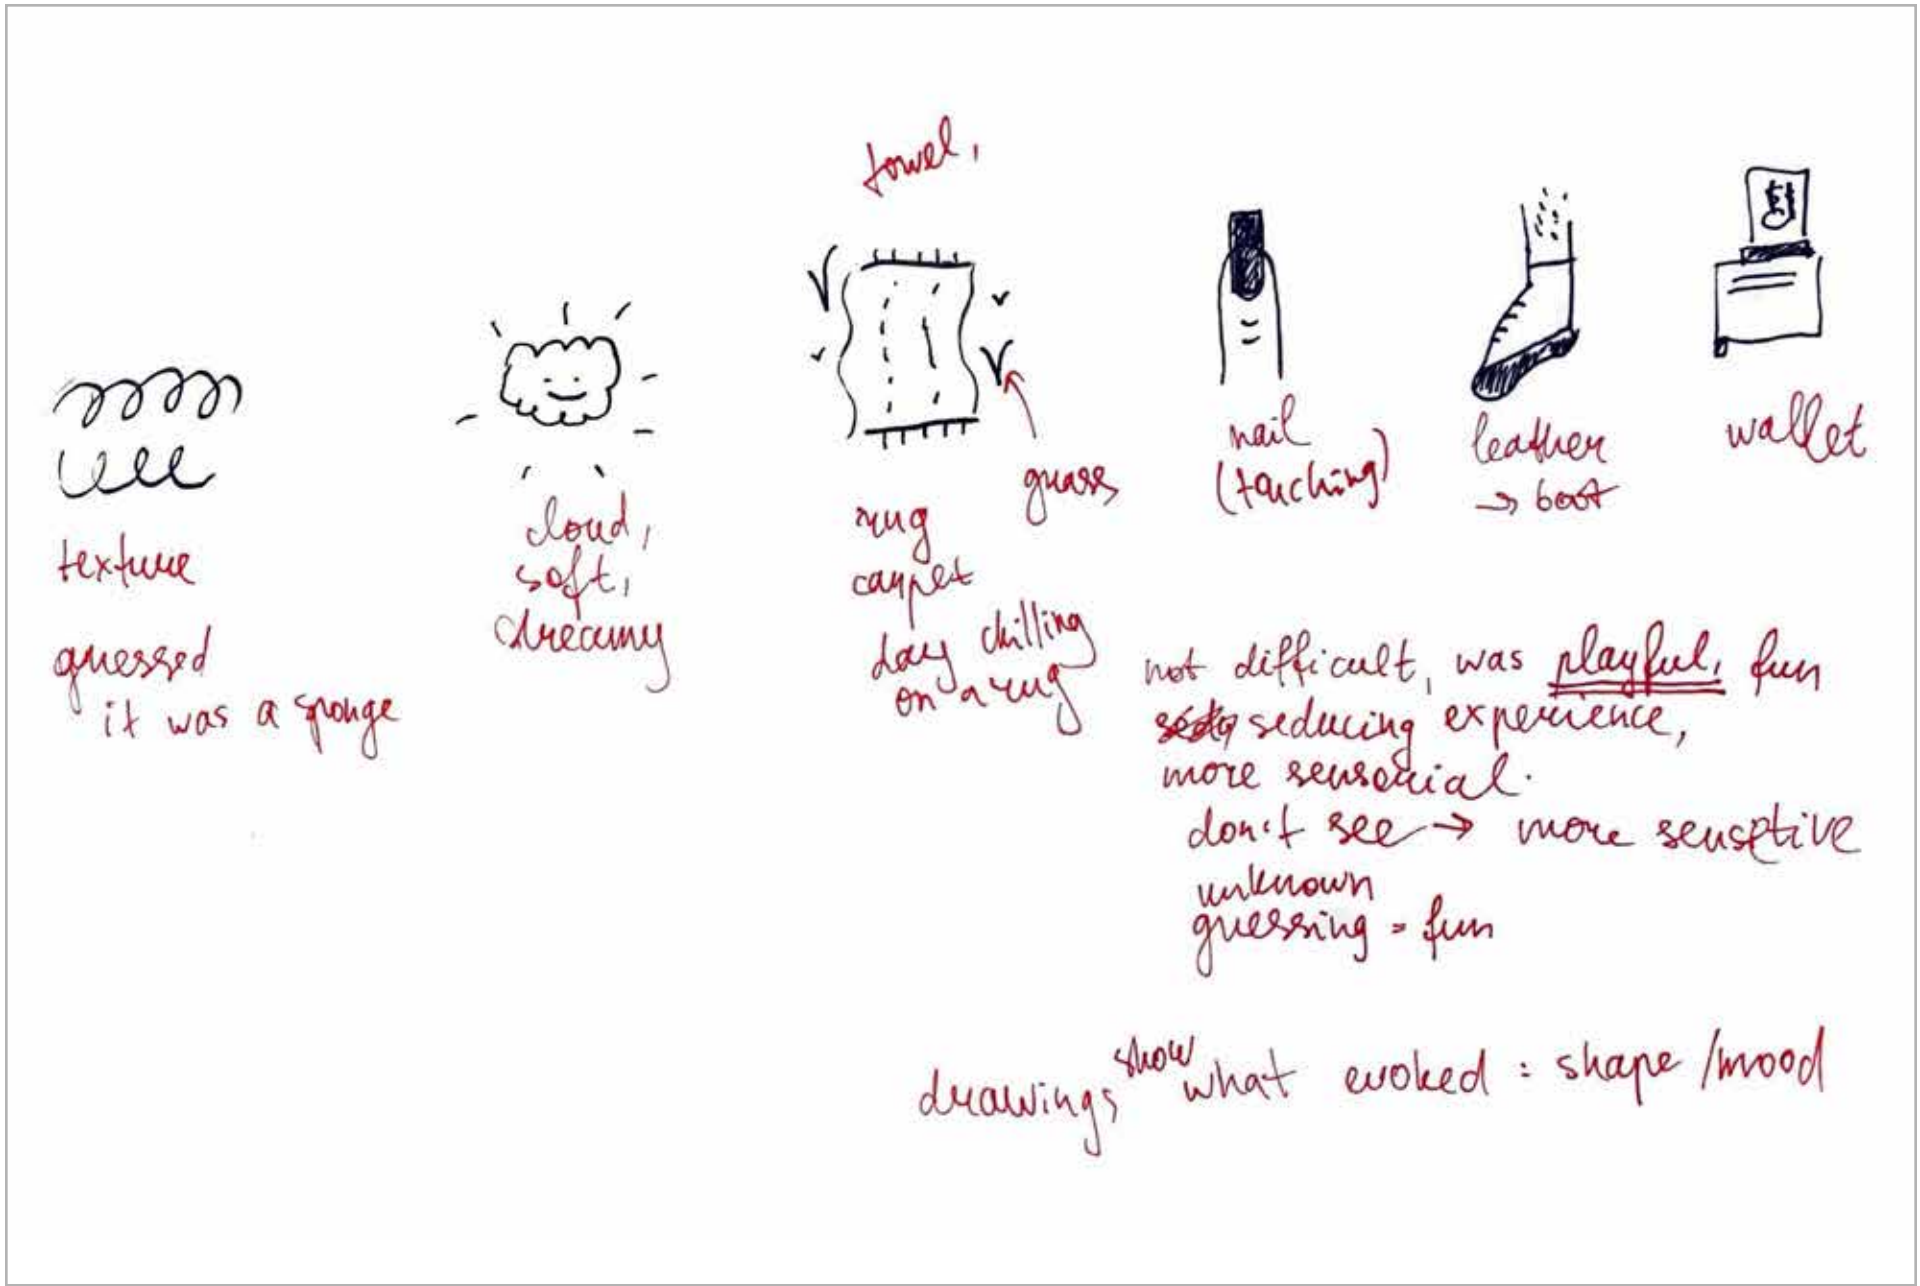 texture
guessed
it was a sponge
cloud,
soft,
dreamy
towel,
grass
rug
carpet
day chilling
on a rug
nail
(touching)
leather
→ boot
wallet
not difficult, was playful, fun
seducing experience,
more sensorial.
don't see → more sensetive
unknown
guessing = fun
drawings show what evoked : shape / mood